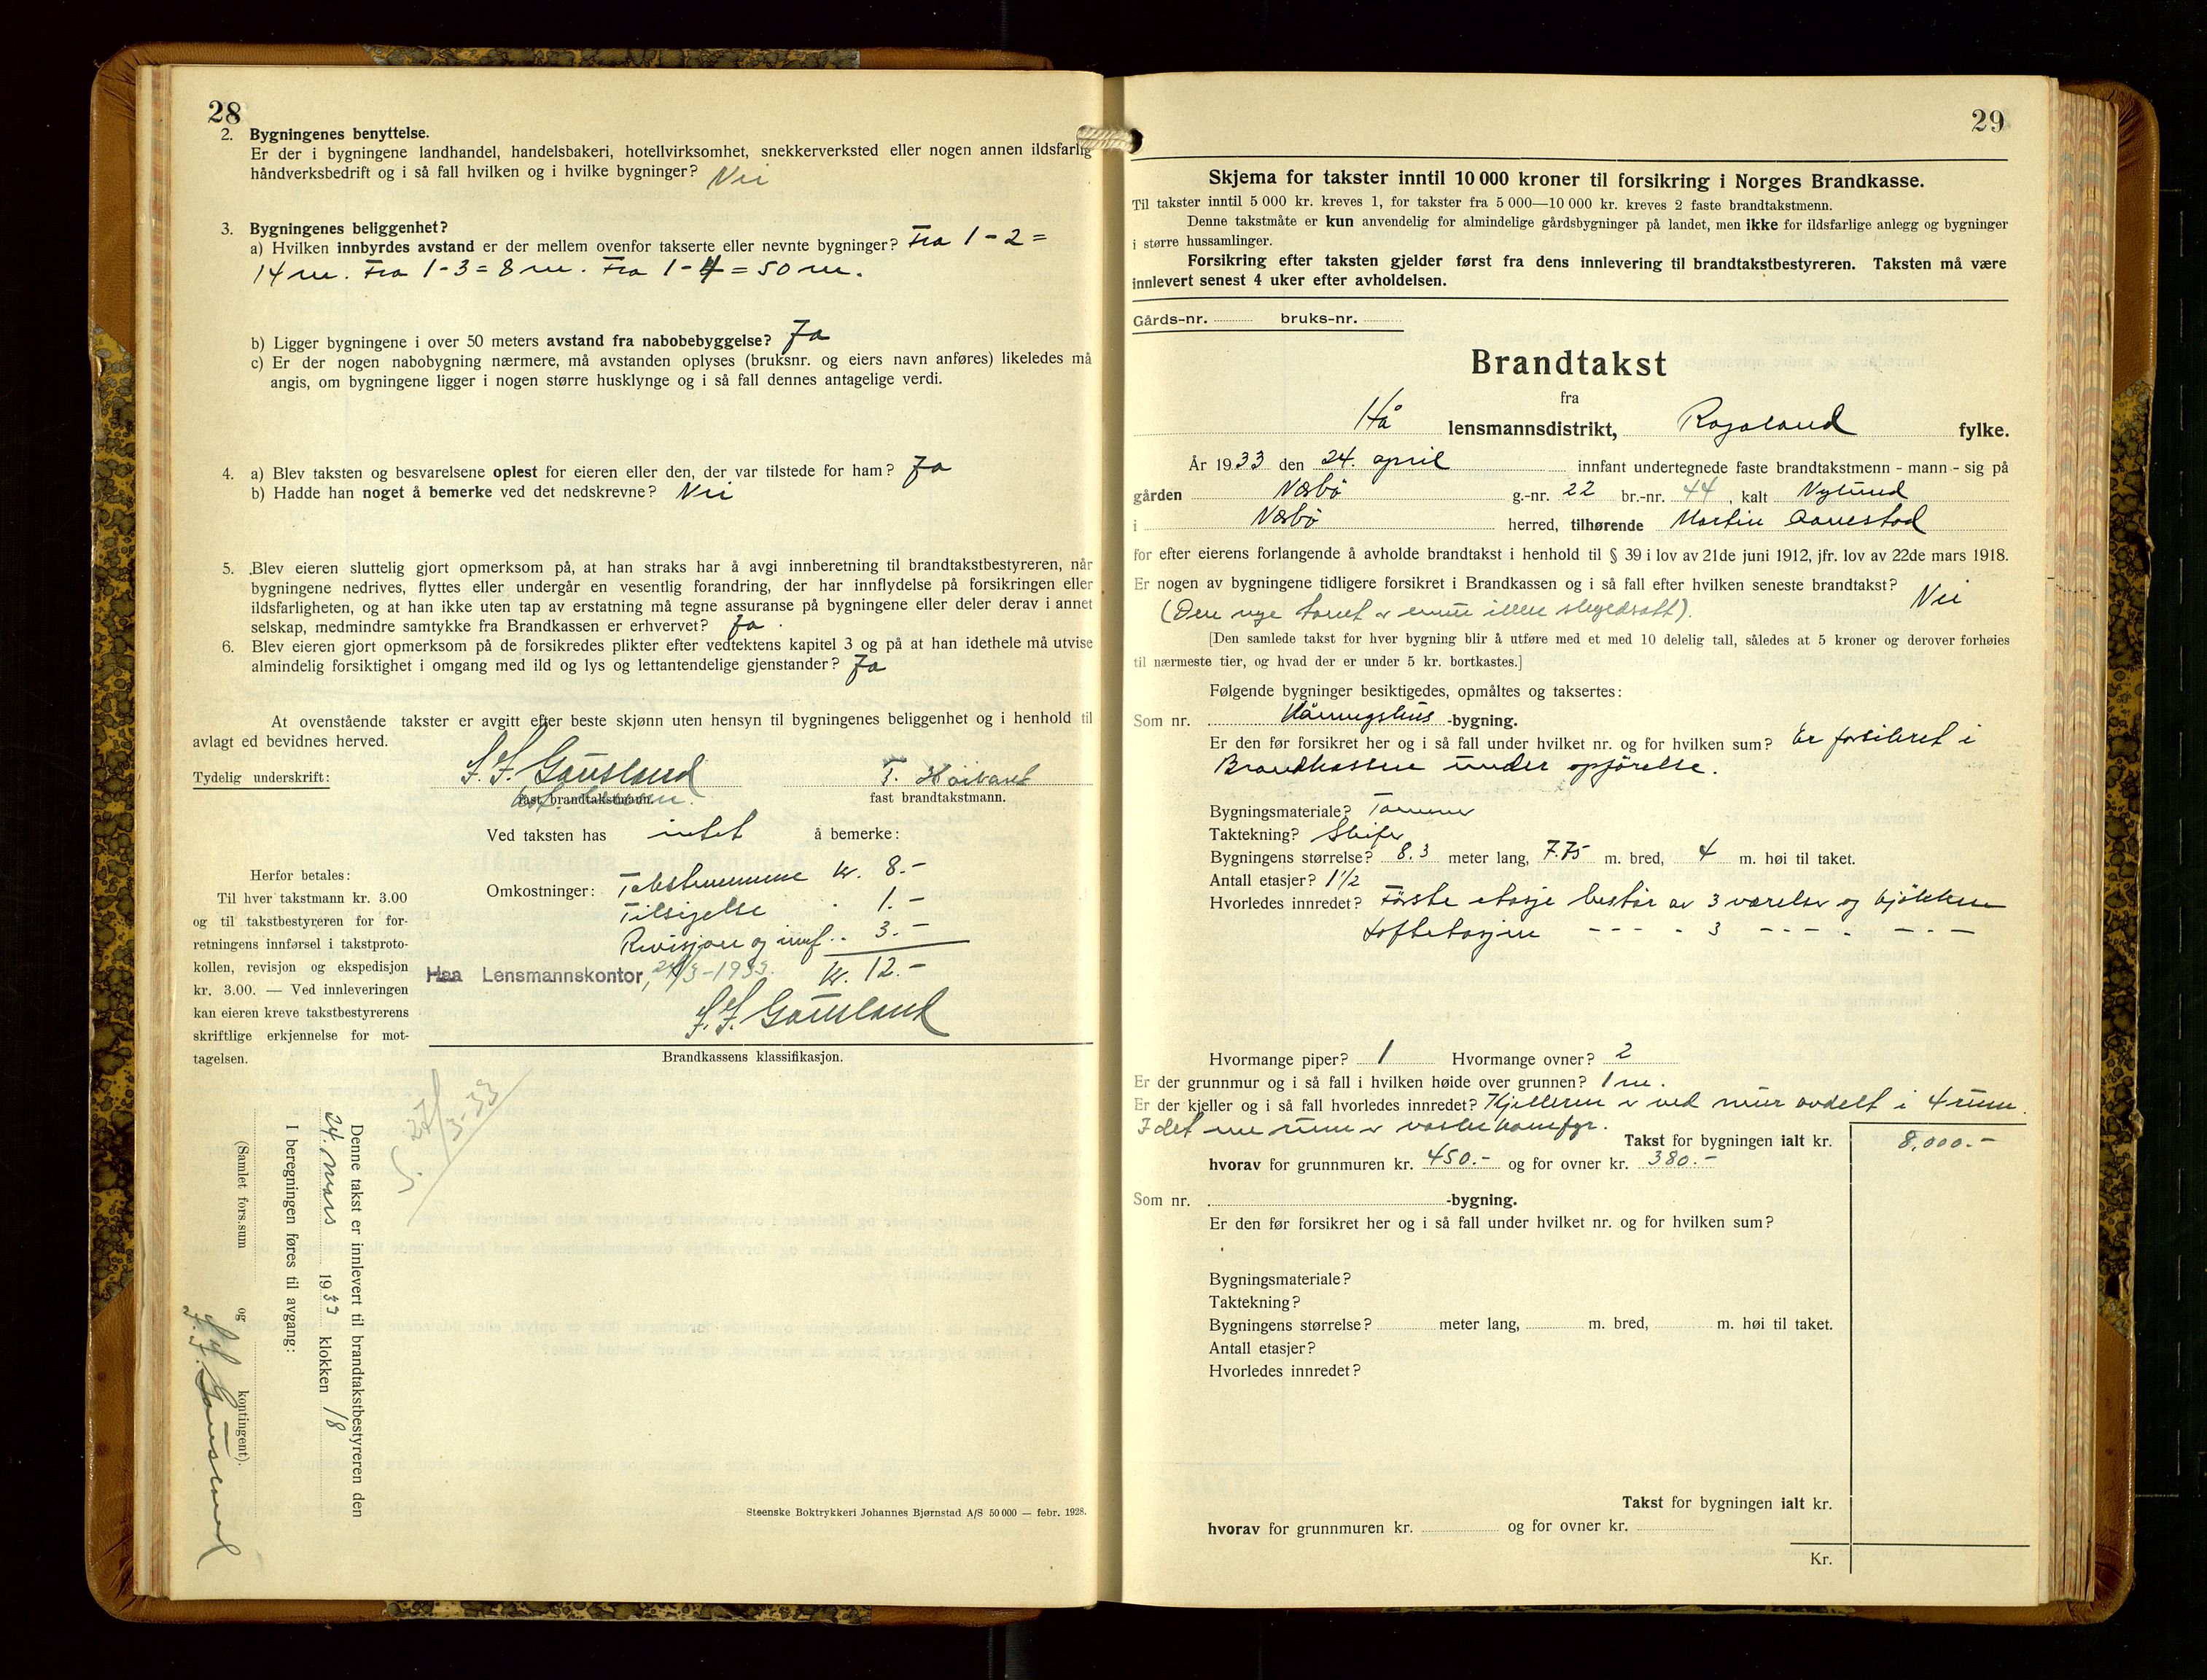 28
2. Bygningenes benyttelse.
Er der i bygningene landhandel, handelsbakeri, hotellvirksomhet, snekkerverksted eller nogen annen ildsfarlig
håndverksbedrift og i så fall hvilken og i hvilke bygninger? Nei
3. Bygningenes beliggenhet?
a) Hvilken innbyrdes avstand er der mellem ovenfor takserte eller nevnte bygninger? Fra 1-2=
14 m. Fra 1-3=8 m. Fra 1-4=50 m.
b) Ligger bygningene i over 50 meters avstand fra nabobebyggelse? Ja
c) Er der nogen nabobygning nærmere, må avstanden oplyses (bruksnr. og eiers navn anføres) likeledes må
angis, om bygningene ligger i nogen større husklynge og i så fall dennes antagelige verdi.
4. a) Blev taksten og besvarelsene oplest for eieren eller den, der var tilstede for ham? Ja
b) Hadde han noget å bemerke ved det nedskrevne? Nei
5. Blev eieren sluttelig gjort opmerksom på, at han straks har å avgi innberetning til brandtakstbestyreren, når
bygningene nedrives, flyttes eller undergår en vesentlig forandring, der har innflydelse på forsikringen eller
ildsfarligheten, og at han ikke uten tap av erstatning må tegne assuranse på bygningene eller deler derav i annet
selskap, medmindre samtykke fra Brandkassen er erhvervet? Ja.
6. Blev eieren gjort opmerksom på de forsikredes plikter efter vedtektens kapitel 3 og på at han idethele må utvise
almindelig forsiktighet i omgang med ild og lys og lettantendelige gjenstander? Ja
At ovenstående takster er avgitt efter beste skjønn uten hensyn til bygningenes beliggenhet og i henhold til
avlagt ed bevidnes herved.
Tydelig underskrift: S. F. Gausland
fast brandtakstmann. fast brandtakstmann.
Ved taksten has intet å bemerke:
Omkostninger: Takstmennene kr. 8.-
Tilsigelse " 1.-
Revisjon og innf. " 3.-
Haa Lensmannskontor, 24/3-1933. kr. 12.-
S. F. Gausland
Herfor betales:
Til hver takstmann kr. 3.00
og til takstbestyreren for for-
retningens innførsel i takstproto-
kollen, revisjon og ekspedisjon
kr. 3.00. — Ved innleveringen
kan eieren kreve takstbestyrerens
skriftlige erkjennelse for mot-
tagelsen.
Brandkassens klassifikasjon.
27/3-33
Denne takst er innlevert til brandtakstbestyreren den
24. mars 1933 klokken 18
I beregningen føres til avgang:
(Samlet fors.sum og kontingent).
S. F. Gausland
Steenske Boktrykkeri Johannes Bjørnstad A/S 50 000 — febr. 1928.
29
Skjema for takster inntil 10 000 kroner til forsikring i Norges Brandkasse.
Til takster inntil 5 000 kr. kreves 1, for takster fra 5 000—10 000 kr. kreves 2 faste brandtakstmenn.
Denne takstmåte er kun anvendelig for almindelige gårdsbygninger på landet, men ikke for ildsfarlige anlegg og bygninger
i større hussamlinger.
Forsikring efter taksten gjelder først fra dens innlevering til brandtakstbestyreren. Taksten må være
innlevert senest 4 uker efter avholdelsen.
Gårds-nr. bruks-nr.
Brandtakst
fra
Hå lensmannsdistrikt, Rogaland fylke.
År 1933 den 24. april innfant undertegnede faste brandtakstmenn - mann - sig på
gården Nærbø g.-nr. 22 br.-nr. 44, kalt Nylund
i Nærbø herred, tilhørende Martin Aanestad
for efter eierens forlangende å avholde brandtakst i henhold til § 39 i lov av 21de juni 1912, jfr. lov av 22de mars 1918.
Er nogen av bygningene tidligere forsikret i Brandkassen og i så fall efter hvilken seneste brandtakst? Nei
(Den nye tomt er ennu ikke skyldsatt).
[Den samlede takst for hver bygning blir å utføre med et med 10 delelig tall, således at 5 kroner og derover forhøies
til nærmeste tier, og hvad der er under 5 kr. bortkastes.]
Følgende bygninger besiktigedes, opmåltes og taksertes:
Som nr. Våningshus -bygning.
Er den før forsikret her og i så fall under hvilket nr. og for hvilken sum? Er forsikret i
Brandkassen under opførelse.
Bygningsmateriale? Tømmer
Taktekning? Skifer
Bygningens størrelse? 8.3 meter lang, 7.75 m. bred, 4 m. høi til taket.
Antall etasjer? 1 1/2
Hvorledes innredet? Første etasje består av 3 værelser og kjøkken
Loftetasjen - - - - 3 - - - - - - -
Hvormange piper? 1 Hvormange ovner? 2
Er der grunnmur og i så fall i hvilken høide over grunnen? 1 m.
Er der kjeller og i så fall hvorledes innredet? Kjelleren er ved mur avdelt i 4 rum.
I det ene rum er vaskekomfyr. Takst for bygningen ialt kr. 8,000.-
hvorav for grunnmuren kr. 450.- og for ovner kr. 380.-
Som nr. -bygning.
Er den før forsikret her og i så fall under hvilket nr. og for hvilken sum?
Bygningsmateriale?
Taktekning?
Bygningens størrelse? meter lang, m. bred, m. høi til taket.
Antall etasjer?
Hvorledes innredet?
Takst for bygningen ialt kr.
hvorav for grunnmuren kr. og for ovner kr.
Kr.